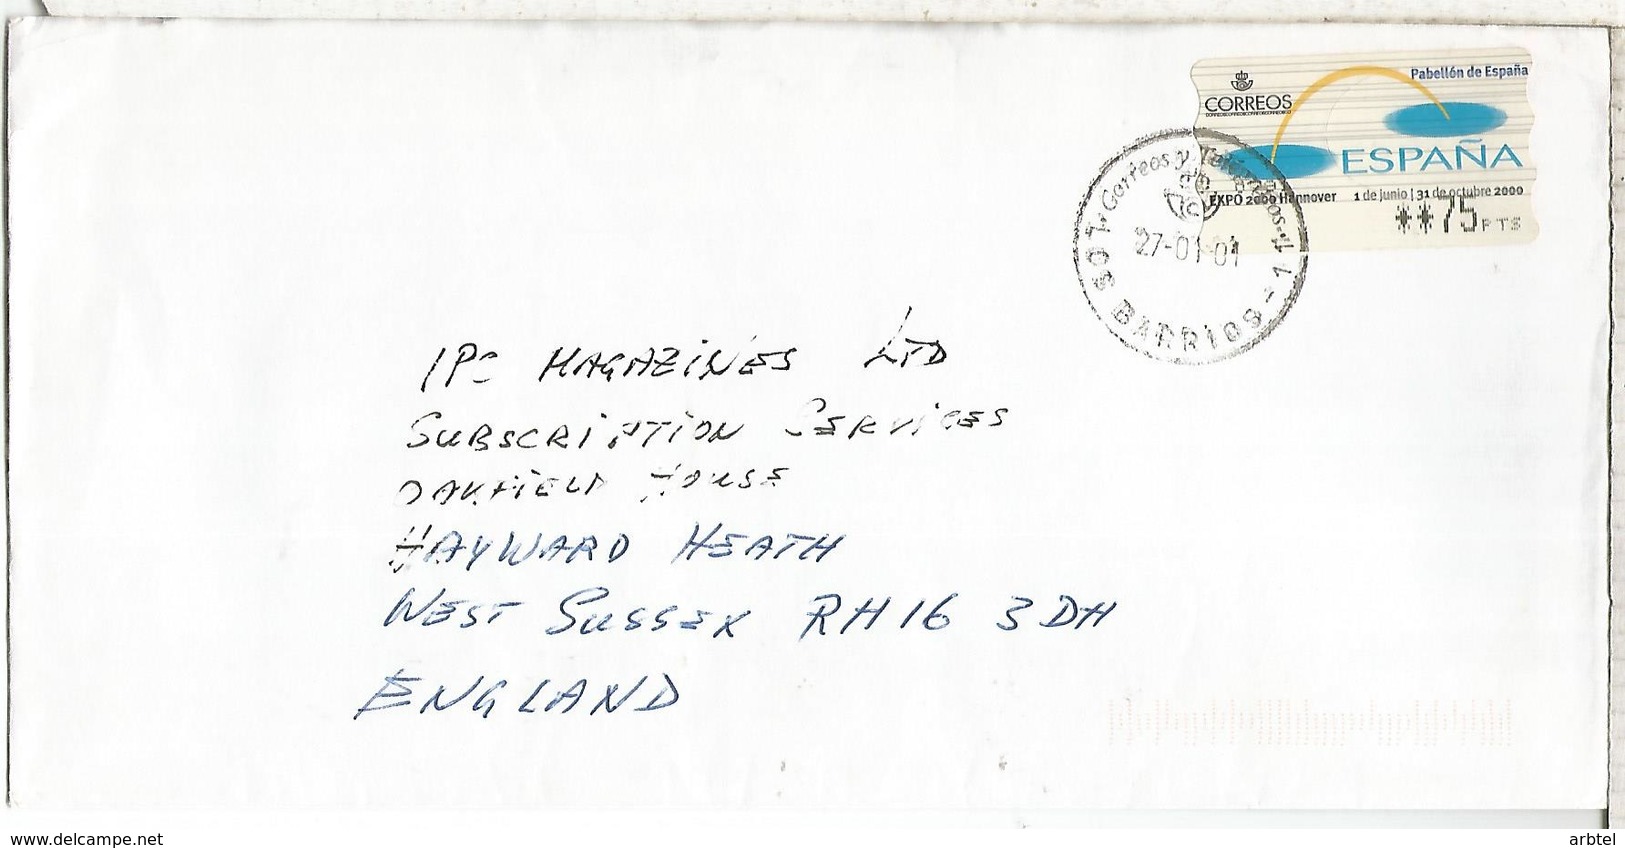 Pabellón de España
CORREOS
ESPAÑA
EXPO 2000 Hannover 1 de junio | 31 de octubre 2000
**75 PTS
Correos y Telégrafos
27-01-01
LOS BARRIOS
IPC MAGAZINES LTD
SUBSCRIPTION SERVICES
OAKFIELD HOUSE
HAYWARD HEATH
WEST SUSSEX RH16 3DH
ENGLAND
www.delcampe.net
arbtel